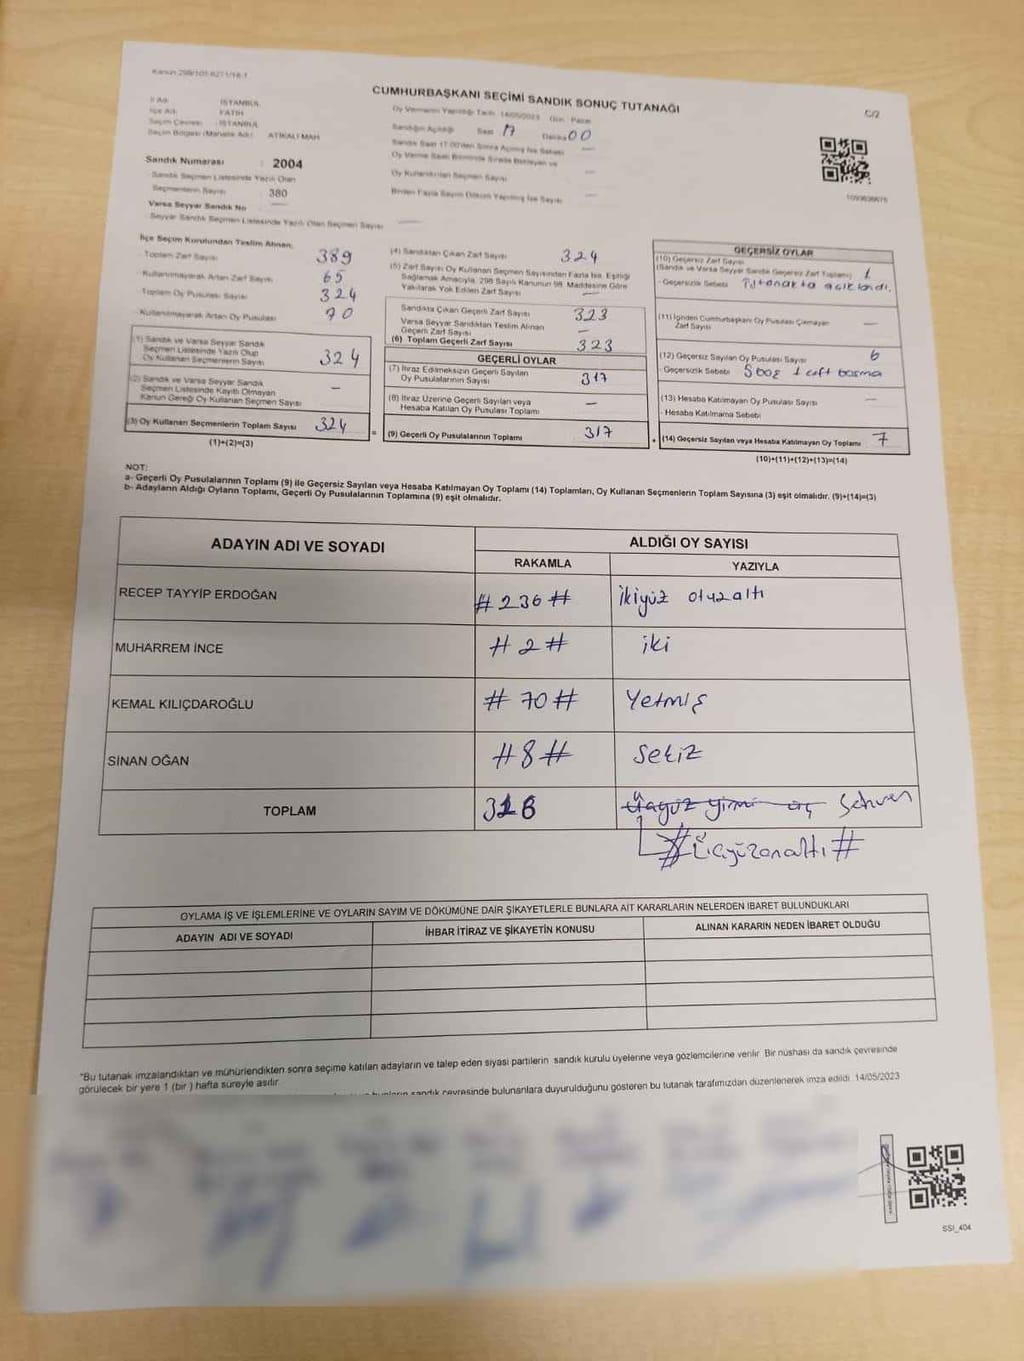 Kanun 298/101-6271/18-1
CUMHURBAŞKANI SEÇİMİ SANDIK SONUÇ TUTANAĞI
C/2
İl Adı : İSTANBUL
İlçe Adı : FATİH
Seçim Çevresi : İSTANBUL
Seçim Bölgesi (Mahalle Adı) : ATİKALİ MAH
Sandık Numarası : 2004
Sandık Seçmen Listesinde Yazılı Olan
Seçmenlerin Sayısı : 380
Varsa Seyyar Sandık No —
Seyyar Sandık Seçmen Listesinde Yazılı Olan Seçmen Sayısı —
Oy Vermenin Yapıldığı Tarih 14/05/2023 Gün Pazar
Sandığın Açıldığı Saat 17 Dakika 00
Sandık Saat 17:00'den Sonra Açılmış İse Sebebi —
Oy Verme Saati Bitiminde Sırada Bekleyen ve
Oy Kullandırılan Seçmen Sayısı —
Birden Fazla Sayım Döküm Yapılmış İse Sayısı —
İlçe Seçim Kurulundan Teslim Alınan;
Toplam Zarf Sayısı 389
Kullanılmayarak Artan Zarf Sayısı 65
Toplam Oy Pusulası Sayısı 324
Kullanılmayarak Artan Oy Pusulası 70
(1) Sandık ve Varsa Seyyar Sandık
Seçmen Listesinde Yazılı Olup
Oy Kullanan Seçmenlerin Sayısı 324
(2) Sandık ve Varsa Seyyar Sandık
Seçmen Listesinde Kayıtlı Olmayan
Kanun Gereği Oy Kullanan Seçmen Sayısı —
(3) Oy Kullanan Seçmenlerin Toplam Sayısı 324
(1)+(2)=(3)
(4) Sandıktan Çıkan Zarf Sayısı 324
(5) Zarf Sayısı Oy Kullanan Seçmen Sayısından Fazla İse, Eşitliği
Sağlamak Amacıyla, 298 Sayılı Kanunun 98. Maddesine Göre
Yakılarak Yok Edilen Zarf Sayısı —
Sandıkta Çıkan Geçerli Zarf Sayısı 323
Varsa Seyyar Sandıktan Teslim Alınan
Geçerli Zarf Sayısı —
(6) Toplam Geçerli Zarf Sayısı 323
GEÇERLİ OYLAR
(7) İtiraz Edilmeksizin Geçerli Sayılan
Oy Pusulalarının Sayısı 317
(8) İtiraz Üzerine Geçerli Sayılan veya
Hesaba Katılan Oy Pusulası Toplamı —
= (9) Geçerli Oy Pusulalarının Toplamı 317
GEÇERSİZ OYLAR
(10) Geçersiz Zarf Sayısı
(Sandık ve Varsa Seyyar Sandık Geçersiz Zarf Toplamı) 1
- Geçersizlik Sebebi Tutanakta açıklandı.
(11) İçinden Cumhurbaşkanı Oy Pusulası Çıkmayan
Zarf Sayısı —
(12) Geçersiz Sayılan Oy Pusulası Sayısı 6
- Geçersizlik Sebebi 5 boş 1 çift basma
(13) Hesaba Katılmayan Oy Pusulası Sayısı —
- Hesaba Katılmama Sebebi
+ (14) Geçersiz Sayılan veya Hesaba Katılmayan Oy Toplamı 7
(10)+(11)+(12)+(13)=(14)
NOT:
a- Geçerli Oy Pusulalarının Toplamı (9) ile Geçersiz Sayılan veya Hesaba Katılmayan Oy Toplamı (14) Toplamları, Oy Kullanan Seçmenlerin Toplam Sayısına (3) eşit olmalıdır. (9)+(14)=(3)
b- Adayların Aldığı Oyların Toplamı, Geçerli Oy Pusulalarının Toplamına (9) eşit olmalıdır.
ADAYIN ADI VE SOYADI
ALDIĞI OY SAYISI
RAKAMLA YAZIYLA
RECEP TAYYİP ERDOĞAN # 236 # ikiyüz otuzaltı
MUHARREM İNCE # 2 # iki
KEMAL KILIÇDAROĞLU # 70 # Yetmiş
SİNAN OĞAN # 8 # Sekiz
TOPLAM 316 Üçyüz yirmi üç Sehven
# Üçyüzonaltı #
OYLAMA İŞ VE İŞLEMLERİNE VE OYLARIN SAYIM VE DÖKÜMÜNE DAİR ŞİKAYETLERLE BUNLARA AİT KARARLARIN NELERDEN İBARET BULUNDUKLARI
ADAYIN ADI VE SOYADI İHBAR İTİRAZ VE ŞİKAYETİN KONUSU ALINAN KARARIN NEDEN İBARET OLDUĞU
*Bu tutanak imzalandıktan ve mühürlendikten sonra seçime katılan adayların ve talep eden siyasi partilerin sandık kurulu üyelerine veya gözlemcilerine verilir. Bir nüshası da sandık çevresinde
görülecek bir yere 1 (bir ) hafta süreyle asılır.
bunların sandık çevresinde bulunanlara duyurulduğunu gösteren bu tutanak tarafımızdan düzenlenerek imza edildi. 14/05/2023
SSI_404